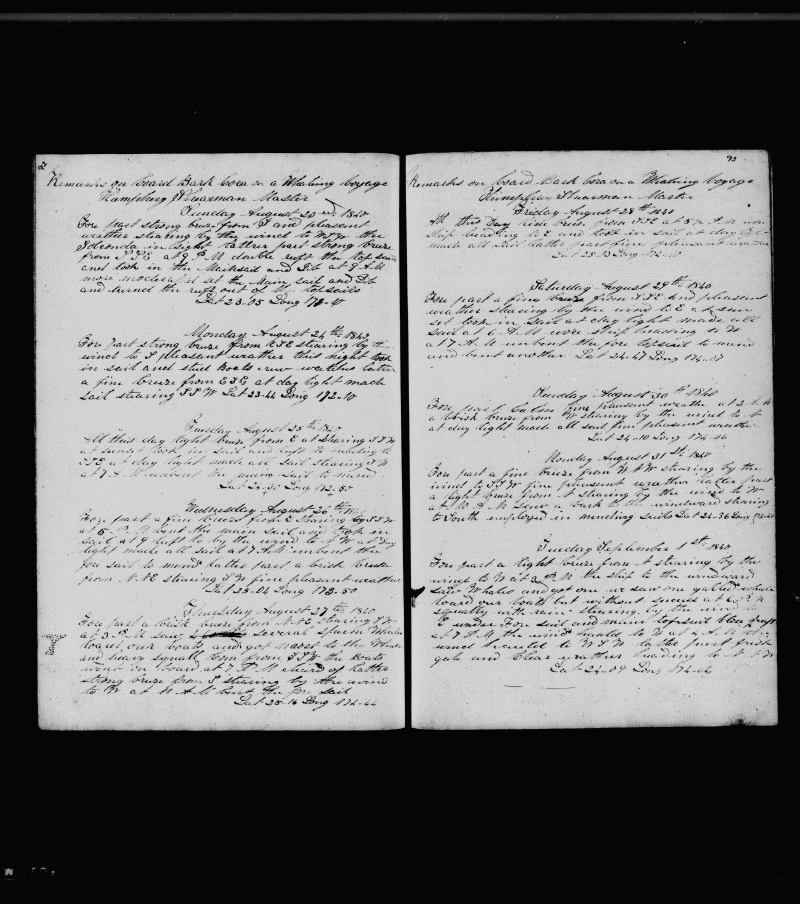 92
Remarks on board Bark Cora on a Whaling Voyage
Humphrey Shearman Master
Sunday August 23 1840
Fore part strong breze from S and pleasent
wether stearing by the wind to WSW the
in Sight latter part strong breze
from SSE at 9 PM double reeft the top sails
and took in the Mainsail and Jib at 9 AM
more moderat set the Main sail and Jib
and turned the reefs out of the topsails
Lat 23-05 Long
Monday August 24th 1840
Fore part strong breze from ESE stearing by the
wind to S pleasent wether this night took
in sail and stud Boats crew watches latter
a fine breze from ESE at day light made
sail stearing SSW Lat 23-44 Long 172-10
Tuesday August 25th 1840
All this day light breze from E at stearing SSW
at sunset took in sail and luft to heading to
SSE at day light made all sail stearing SW
at 7 AM unbent the main sail to mend
Lat 24-30 Long 172-50
Wednesday August 26th 1840
Fore part a fine breeze from E stearing by SSW
at 5 PM bent the main sail and took in
sail at 9 luft to by the wind to NW at Day
light made all sail at 7 AM unbent the
fore sail to mend latter part a brisk breze
from NNE stearing SW fine pleasent wether
Lat 25-04 Long 173-50
Thursday August 27th 1840
Fore part a brisk breze from NNE stearing SW
at 3 PM saw several Sperm Whales
loard our boats and got to the Whales
and heavy squall from SSW the Boats
on board at 7 PM latter
strong breze from S stearing by the wind
to W at 11 AM bent the fore sail
Lat 25-16 Long 174-44
93
Remarks on board Bark Cora on a Whaling Voyage
Humphrey Shearman Master
Friday August 28th 1840
All this Day breze from SSE at 5 AM
Ship heading E and took in sail at day light
made all sail latter part fine pleasent wether
Lat 25- Long 174-
Saturday August 29th 1840
Fore part a fine breze from SSE and pleasent
wether stearing by the wind to E at sun
set took in sail at day light made all
sail at 6 AM wore ship heading to W
at 7 AM unbent the fore topsail to mend
and bent another Lat 24-47 Long 174-07
Sunday August 30th 1840
Fore part fine pleasent wether at 2 AM
a brisk breze from W stearing by the wind to N
at day light made all sail fine pleasent wether
Lat 24-10 Long 174-46
Monday August 31st 1840
Fore part a fine breeze from WNW stearing by the
wind to SSW fine pleasent wether latter part
a light breze from N stearing by the wind to W
at 10 AM saw a bark to the windward stearing
to South employed in mending sails Lat 24-36 Long
Tuesday September 1st 1840
Fore part a light breze from N stearing by the
wind to W at 2 PM the ship to the windward
saw Whales and got one we saw one gallied whale
loard our boats but without sucsess at 6 PM
squally with rain stearing by the wind to
E under Fore sail and main top sail two reefs
at 7 PM the wind hauld to W at 4 AM the
wind hauled to WSW latter part fresh
gale and Clear wether heading to NNW
Lat 24-09 Long 174-